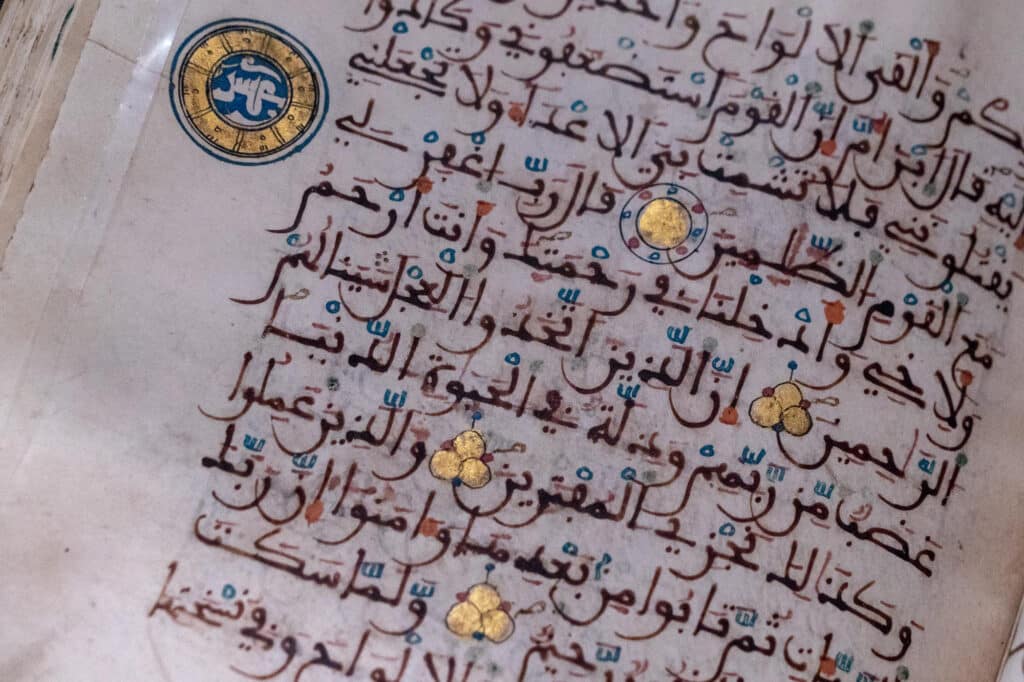 كم وألقى الالواح وأخذ
إليه قال ابن أم إن القوم استضعفوني وكادوا
يقتلونني فلا تشمت بي الاعداء ولا تجعلني
مع القوم الظلمين قال رب اغفر لي
ولاخي وادخلنا في رحمتك وانت ارحم
الرحمين ان الذين اتخذوا العجل سينالهم
غضب من ربهم وذلة في الحيوة الدنيا
وكذلك نجزي المفترين والذين عملوا
ات ثم تابوا من بعدها وامنوا ان ربك
حيم ولما سكت
الالواح وفي نسختها